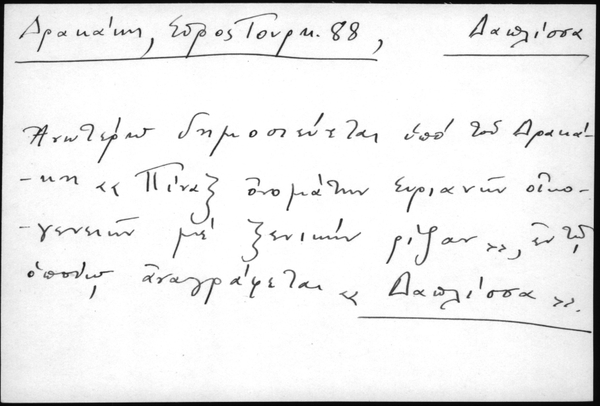 Δρακάκη, Σῦρος Τουρκ. 88, Δαπλίσσα
Ἀνωτέρω δημοσιεύεται ὑπό τοῦ Δρακά-
-κη «Πίναξ ὀνομάτων Συριανῶν οἰκο-
-γενειῶν μέ ξενικήν ρίζαν», ἐν τῷ
ὁποίῳ ἀναγράφεται «Δαπλίσσα».